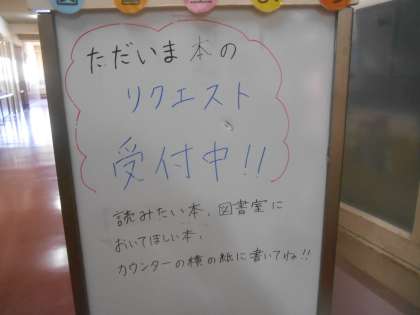 ただいま本の
リクエスト
受付中!!
読みたい本、図書室に
おいてほしい本、
カウンターの横の紙に書いてね!!